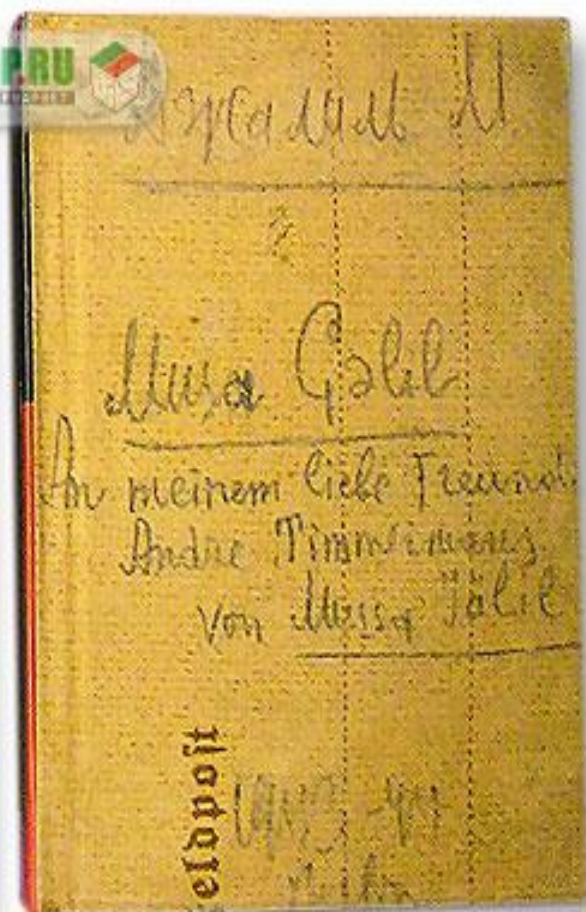 P.RU
Джалиль М.
Musa Çəlil
An meinem liebe Freund
Andre Timmermans
von Mussa Jälil
eldpoſt
1943-44